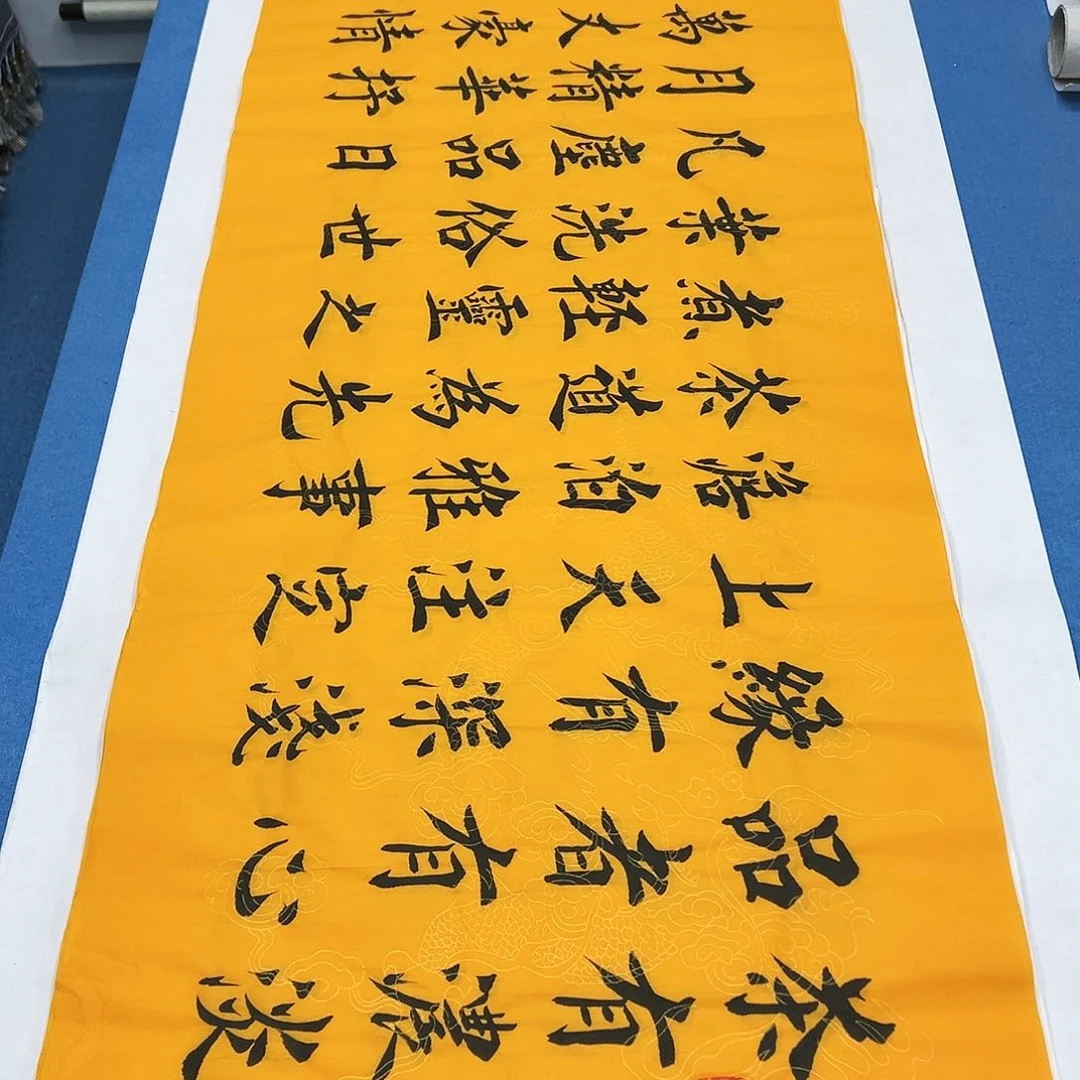 茶有濃淡
品者有心
緣有深淺
上天注定
澹泊雅事
茶道為先
煮輕靈之
葉洗俗世
凡塵品日
月精華抒
萬丈豪情